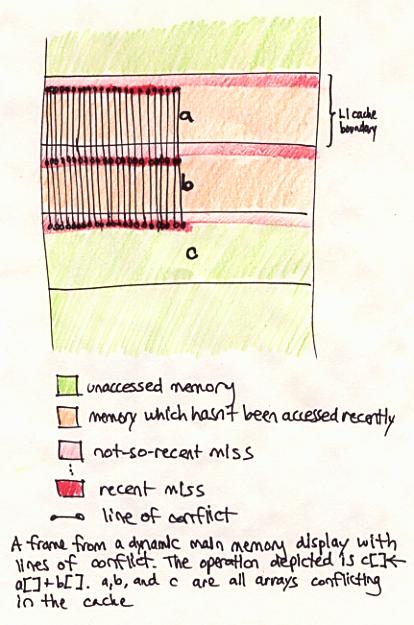 a
L1 cache
boundary
b
c
unaccessed memory
memory which hasn't been accessed recently
not-so-recent miss
recent miss
line of conflict
A frame from a dynamic main memory display with
lines of conflict. The operation depicted is c[]←
a[]+b[]. a,b, and c are all arrays conflicting
in the cache